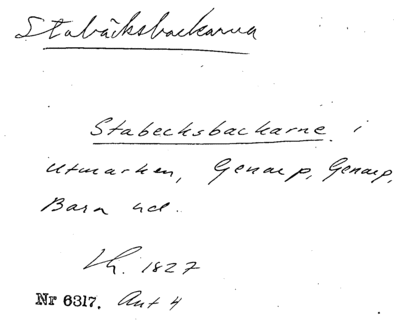 Stabäcksbackarna
Stabecksbackarne i
utmarken, Genarp, Genarp,
Bara hd.
Lh. 1827
Nr 6317. Akt 4